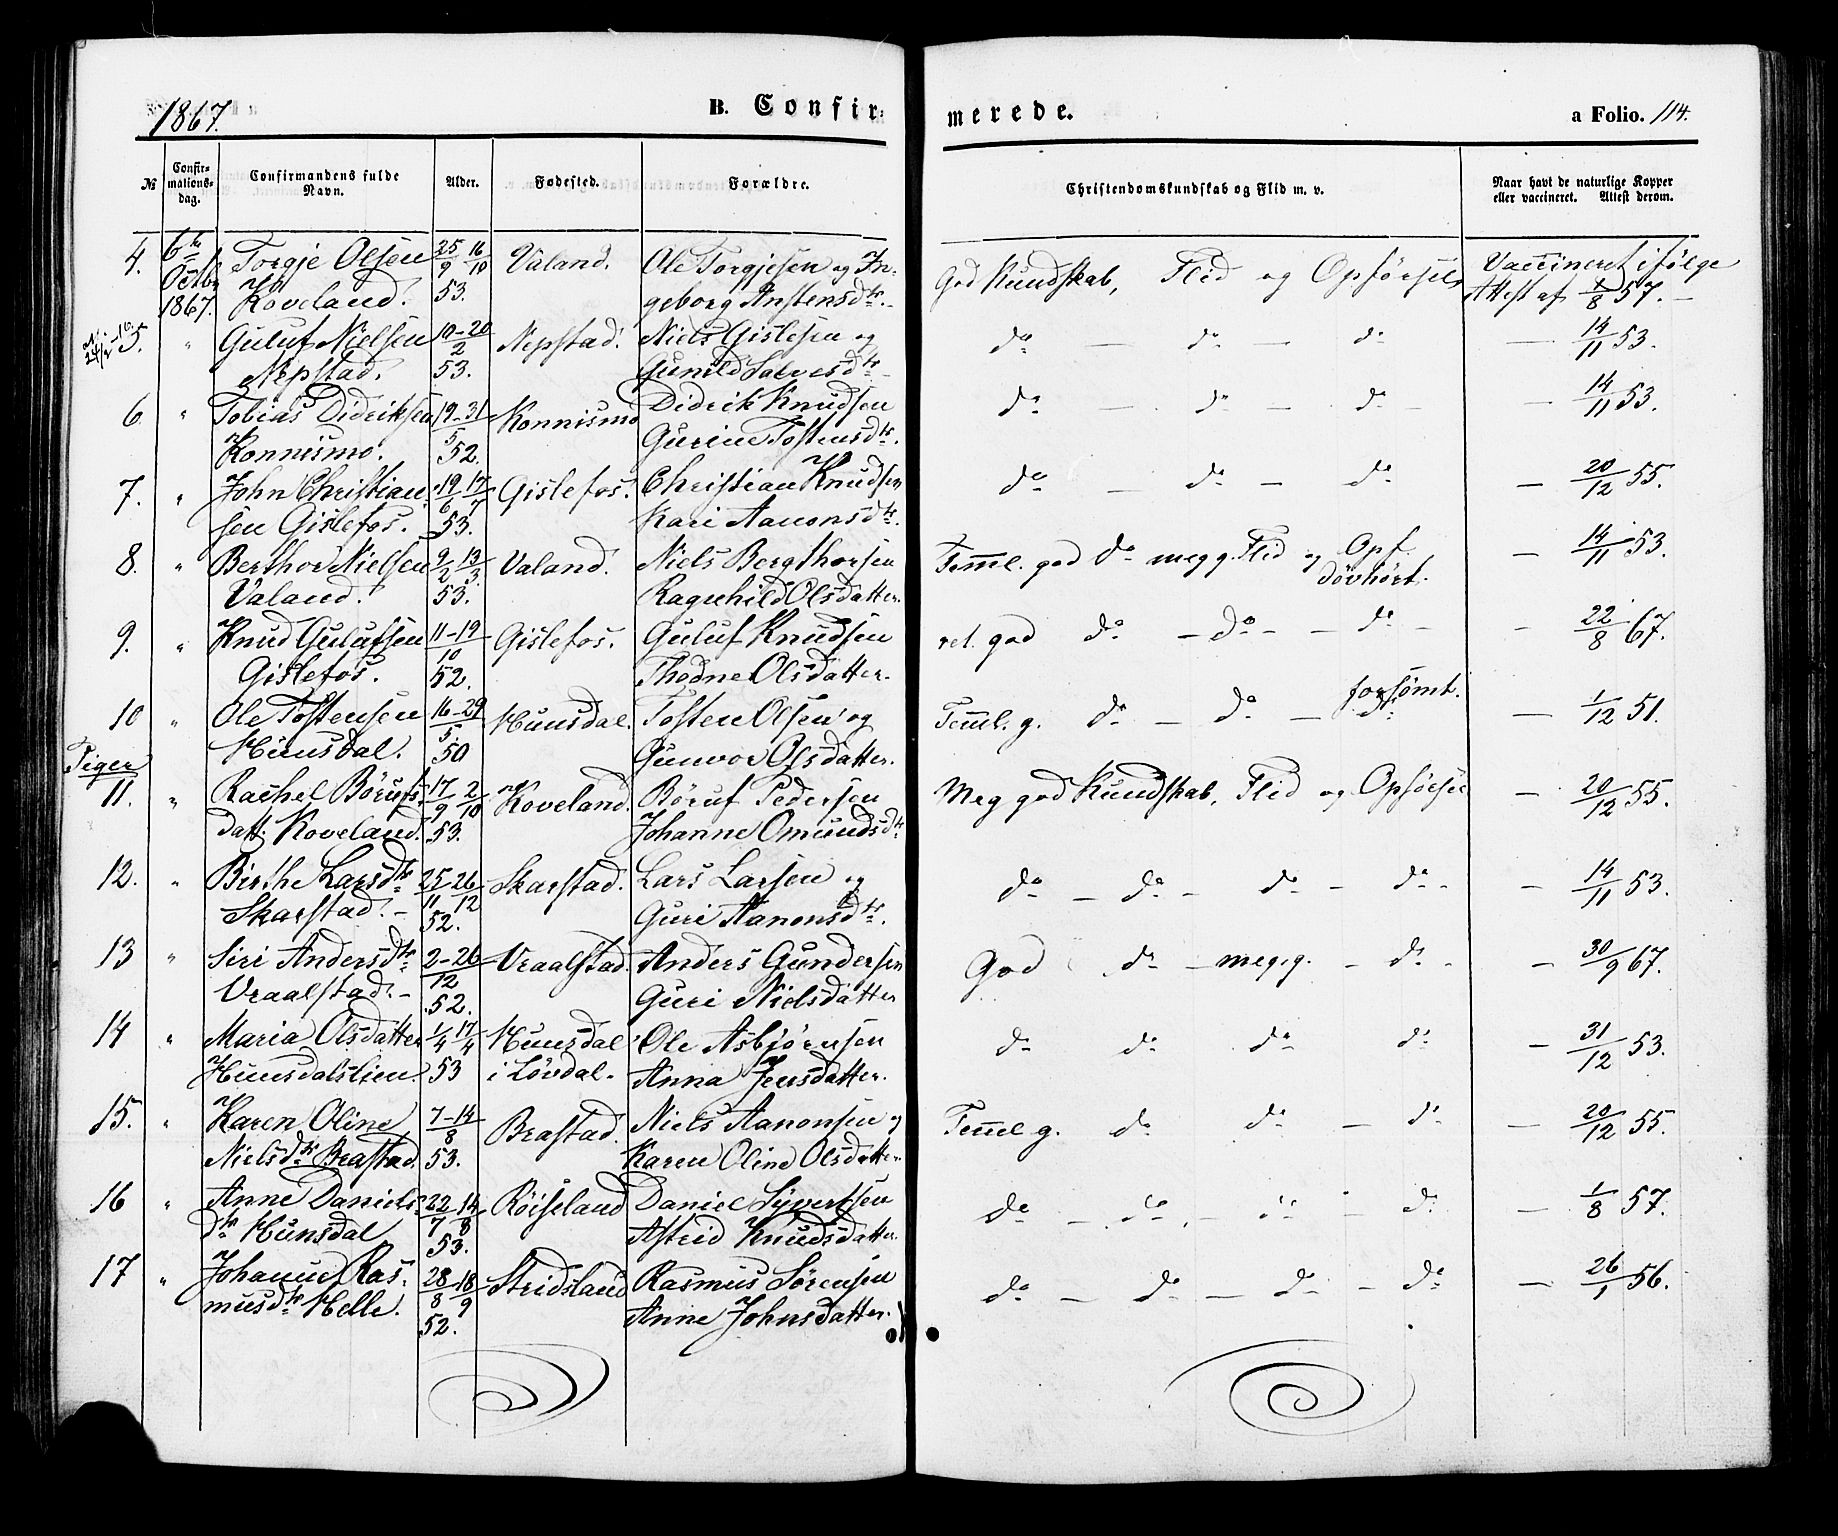 1867.
B. Confirmerede.
a Folio. 114.
№
Confirmationsdag.
Confirmandens fulde Navn.
Alder.
Fødested.
Forældre.
Christendomskundskab og Flid m. v.
Naar havt de naturlige Kopper eller vaccineret. Attest derom.
4. 6te Octbr 1867. Torgje Olsen Koveland. 25/9 16/10 53. Valand. Ole Torgjesen og Ingeborg Anstensdtr. God Kundskab, Flid og Opførsel Vaccineret ifølge Attest af 1/8 57. –
5. " Guluf Nielsen Nepstad. 10–20/2 53. Nepstad. Niels Gislesen og Gunild Salvesdtr do – do – do – 14/11 53.
6 " Tobias Didriksen Konnismo. 19–31/5 52. Konnismo Didrik Knudsen Gurine Tostensdtr. do – do – do – – 14/11 53.
7. " John Christiansen Gislefos. 19/6 17/7 53. Gislefos. Christian Knudsen Kari Aanonsdtr. do – do – do – 20/12 55.
8. " Berthor Nielsen Valand. 9/2 13/3 53. Valand. Niels Bergthorsen Ragnhild Olsdatter. Temml. god do meg g. Flid og Opf. døvhørt. – 14/11 53.
9. " Knud Gulufsen Gislefos. 11–19/10 52. Gislefos. Guluf Knudsen Thodne Olsdatter. ret. god do – do – – do – – 22/8 67.
10 " Ole Tostensen Hunsdal. 16–29/5 50 Hunsdal. Tosten Olsen og Gunvor Olsdatter. Temml. g. do – do – forsømt. do – 1/12 51.
Piger
11. " Rachel Børufsdatt. Koveland. 17/9 2/10 53. Koveland. Børuf Pedersen Johanne Omundsdtr Meg god Kundskab, Flid og Opførsel – 20/12 55.
12. " Birthe Larsdtr Skarstad. – 25–26/11–12 52. Skarstad. Lars Larsen og Guri Aanonsdtr. do – do – do – do – – 14/11 53.
13 " Siri Andersdtr Vraalstad. – 2–26/12 52. Vraalstad. Anders Gundersen Guri Nielsdatter God do – meg. g. – do – – 30/9 67.
14 " Maria Olsdatter Hunsdalslien. 1/4 17/4 53 Hunsdal i Løvdal. Ole Asbjørnsen Anna Jensdatter. do do do do – 31/12 53.
15. " Karen Oline Nielsdtr Brastad. 7–14/8 53. Brastad. Niels Aanonsen og Karen Oline Olsdatter. Temml g. do do – do – 20/12 55.
16 " Anne Danielsdtr Hunsdal 22/7 14/8 53. Røiseland Daniel Syvertsen Astrid Knudsdatter. do – do – do do – 1/8 57.
17 " Johanne Rasmusdtr Helle. 28/8 18/9 52. Stridsland Rasmus Sørensen Anne Johnsdatter. do – do – do – do – 26/1 56.